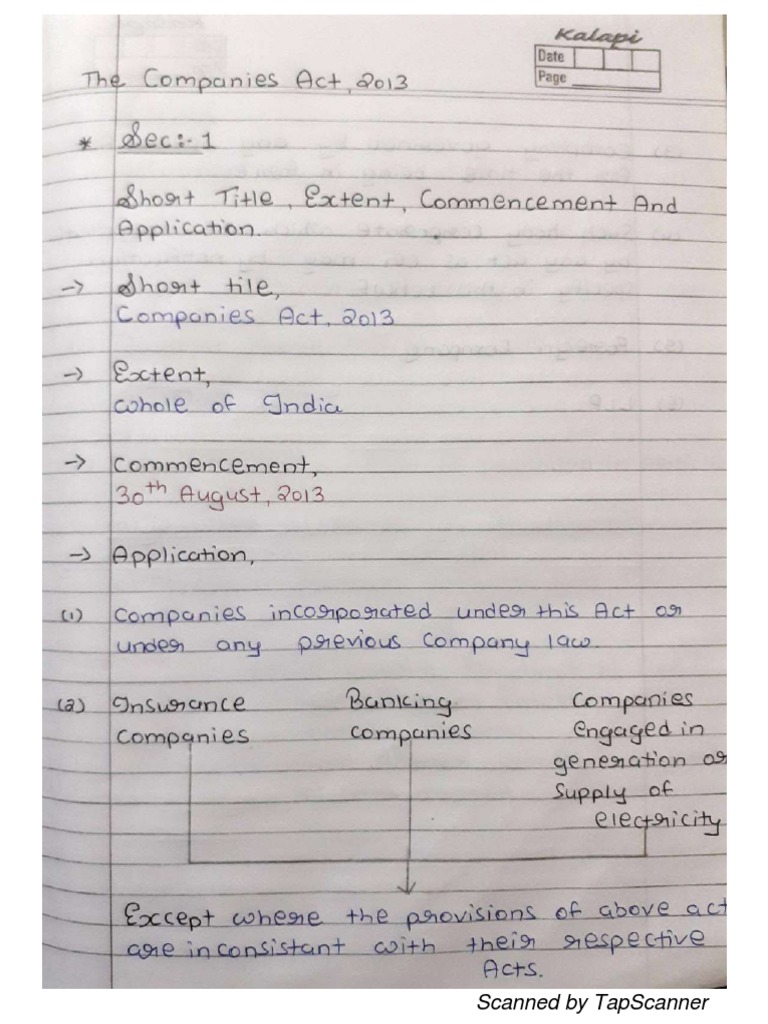 Kalapi
Date
Page
The Companies Act, 2013
* Sec:- 1
Short Title, Extent, Commencement And
Application.
→ Short tile,
Companies Act, 2013
→ Extent,
whole of India
→ Commencement,
30th August, 2013
→ Application,
(1) Companies incorporated under this Act or
under any previous Company law.
(2) Insurance Banking Companies
companies companies engaged in
generation or
Supply of
electricity
Exccept where the provisions of above act
are inconsistant with their respective
Acts.
Scanned by TapScanner